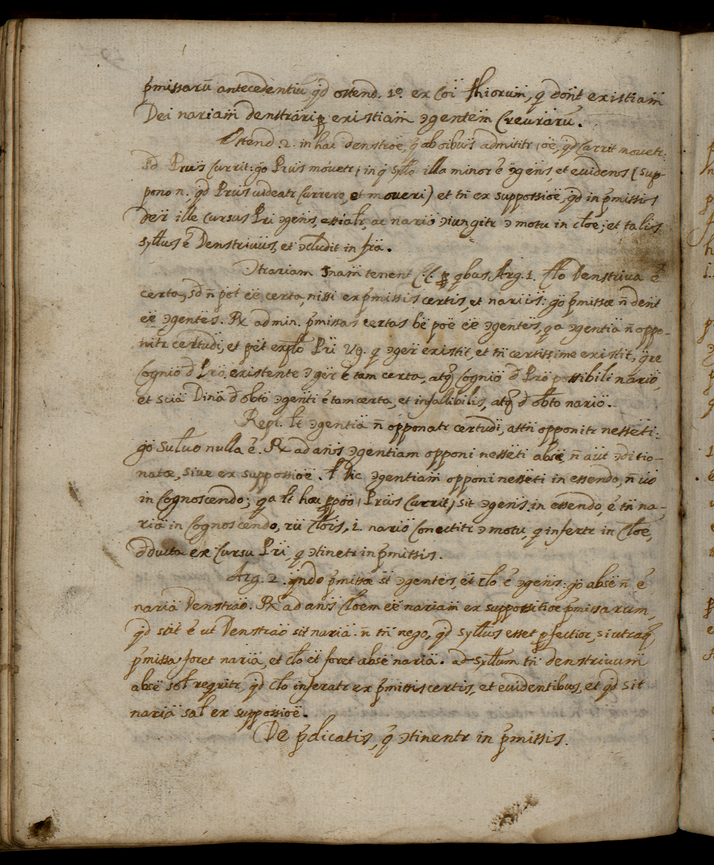 p̃missarũ antecedentiũ q̃d ostend. 1º. ex Coi Thiorum, q̃ dont existiam̃
Dei nariam denstrari ꝑ existiam ꝯgentem Creuraru.
Ostend. 2. in hac denstroe, q̃ ab oibus admititr, oe, qd Carrit movetr.
sd Pr̃us Currit: go Pr̃us movetr; in q̃ syllo illa minor ẽ ꝯgens et euidens (sup-
pono n. q̃d Pr̃us videatr Currere, et moveri) et tñ ex suppossioẽ, q̃d in p̃missis
der̃ ille Cursus Pri ꝯgens, ac nario ꝯiungitr ꝯ motu in cloe; et talis
syllus ẽ Denstrivus, et ꝯcludit in fr̃a.
Ɔtrariam snam tenent CC ꝑ qbus Arg. 1. Clo Denstriva ẽ
certa, sd ñ pot eẽ certa, nissi ex p̃missis certis, et nariis: go p̃missæ ñ dent
eẽ ꝯgentes. R̃ admin. p̃missas certas bẽ poẽ eẽ ꝯgentes, qa ꝯgentia ñ oppo-
nitr certudi, et pẽt Pri Ug. q̃ ꝯger existit, et tñ certissime existit, qre
Cognio d Pro existente ꝯger ẽ tam certa, atq̃ Cognio d Pro possibili nario,
et scia Dina d obto ꝯgenti ẽ tam certa, et infallibilis, atq̃ d obto nario.
Repl. lt ꝯgentia ñ opponatr certudi, attñ opponitr nesseti:
go suluo nulla ẽ. R̃ ad ans ꝯgentiam opponi nesseti absẽ, ñ aut ꝯditio-
natæ, sive ex suppossioẽ. ꝯgentiam opponi nesseti in essendo, ñ uo
in Cognoscendo; qa lt hæc ppoo, Pr̃us Currit, sit ꝯgens in essendo, ẽ tñ na-
ria in Cognoscendo, nario Conectitr ꝯ motu, q infertr in Cloe,
dducta ex Cursu Pri, q ꝯtinetr in p̃missis.
Arg. 2. qndo p̃missæ st ꝯgentes, et clo ẽ ꝯgens: go absẽ ñ ẽ
naria Denstrao. R̃ ad ans Cloem eẽ nariam ex suppositioẽ p̃missarum,
q̃d sat ẽ ut Denstrao sit naria. ñ tñ nego, q̃d syllus esset pfectior, si utraq̃
p̃missa foret naria, et clo et foret absẽ naria. ad syllum tñ denstrivum
absẽ sol reqritr, q̃d clo inferatr ex p̃missis certis, et euidentibus, et q̃d sit
naria sal ex suppossioẽ.
De p̃dicatis, q̃ ꝯtinentr in p̃missis.